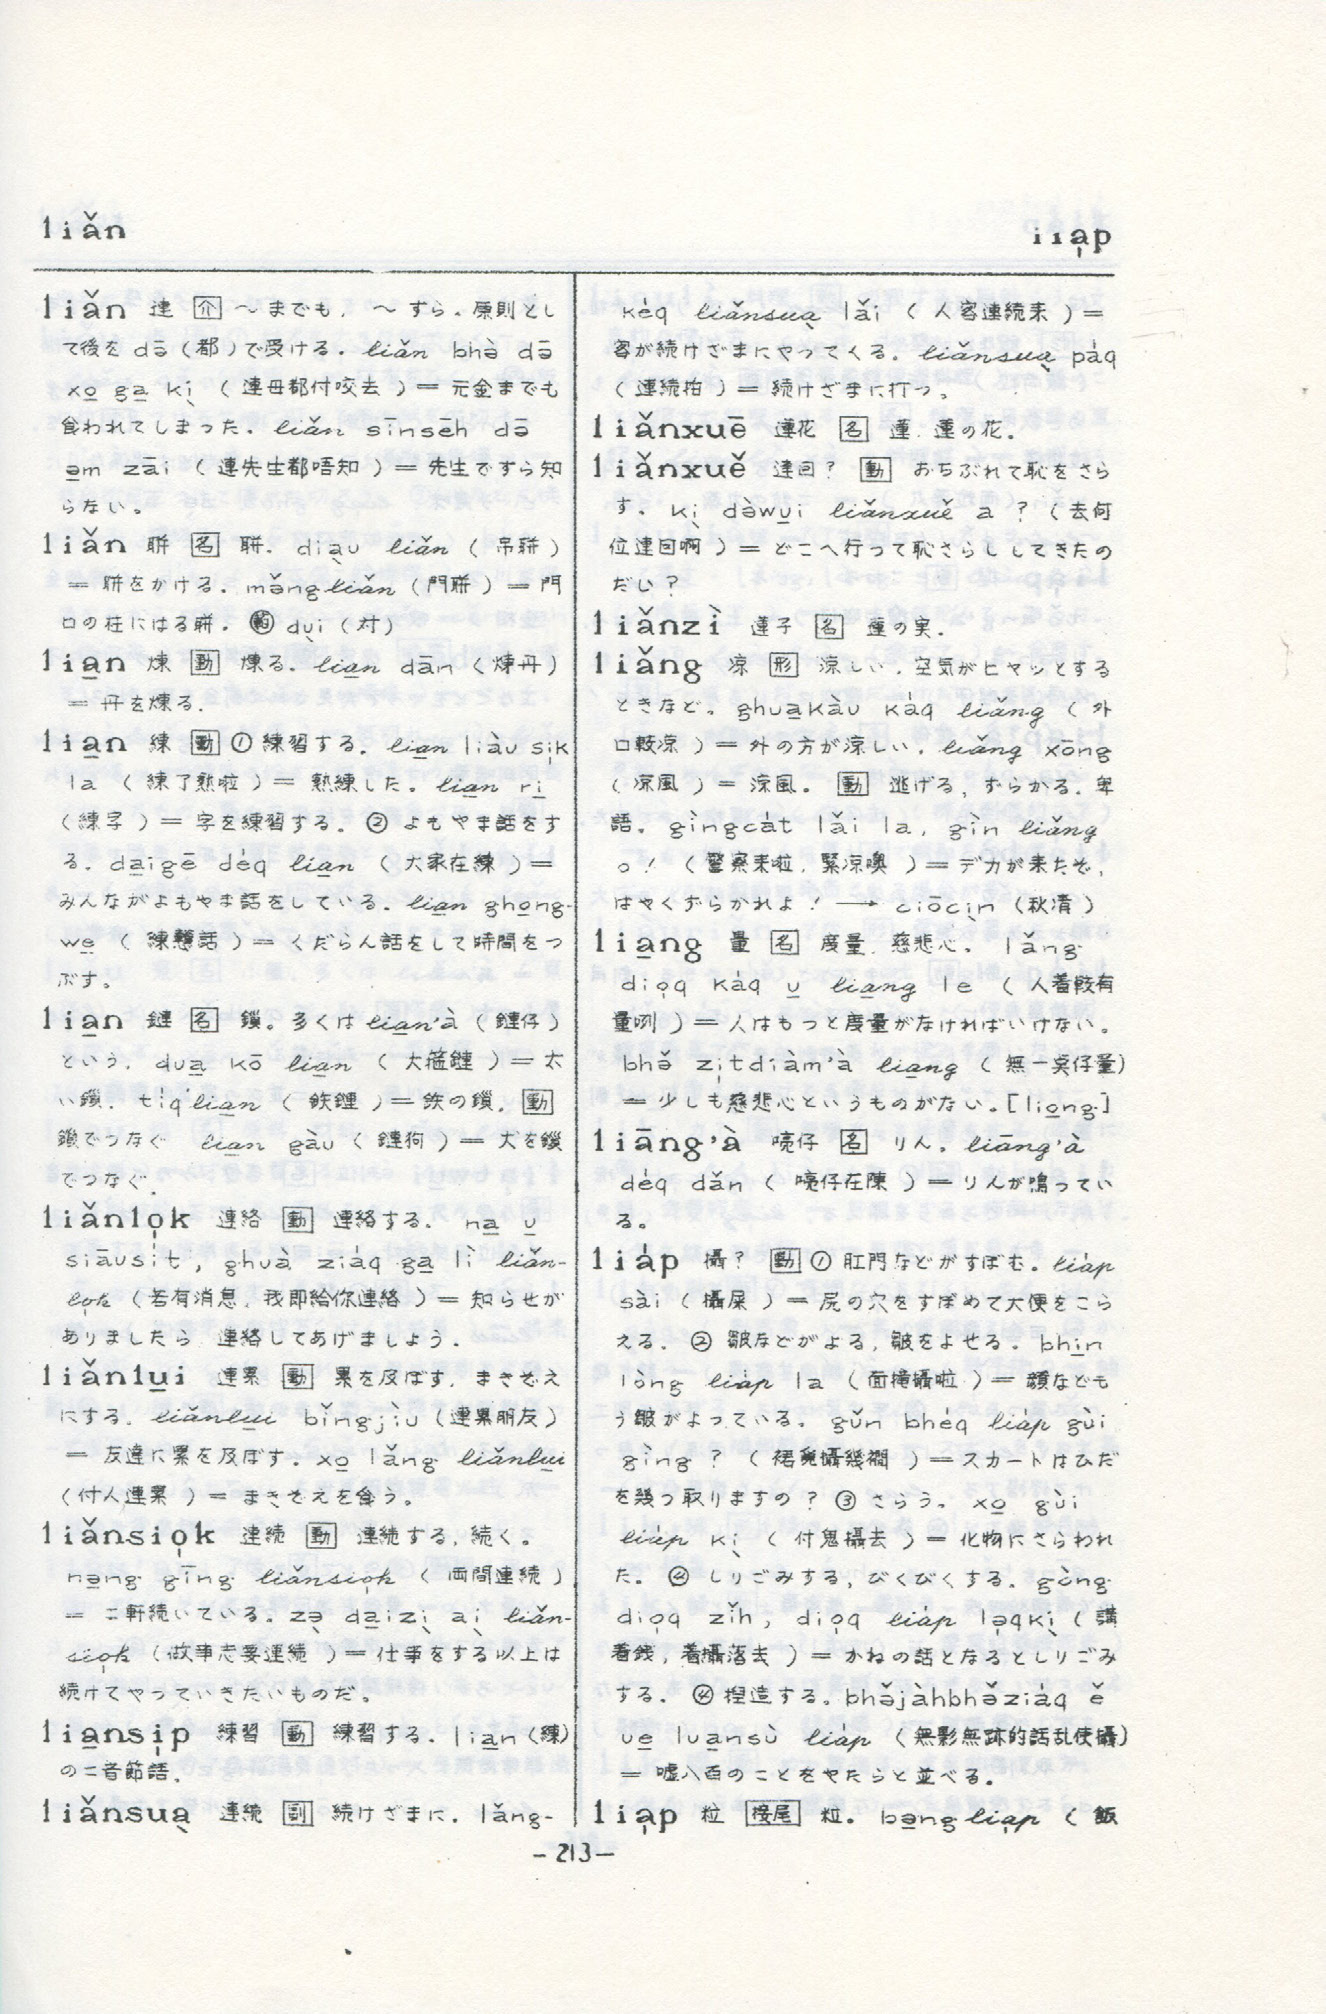 liǎn
lia̍p
liǎn 連 介 〜までも, 〜すら。原則とし
て後を də̄ (都)で受ける. liǎn bhə̀ də̄
xo̲ ga̲ kị (連母都付咬去)＝元金までも
食われてしまった. liǎn sīnsēh də̄
ə̲m zāi (連先生都唔知)＝先生ですら知
らない。
liǎn 聨 名 聨. diạu liǎn (吊聨)
＝聨をかける. mə̌ngliǎn (門聨)＝門
口の柱にはる聨. 数 dụi (対)
lia̲n 煉 動 煉る. lia̲n dān (煉丹)
＝丹を煉る.
lia̲n 練 動 ①練習する. lia̲n liàu si̍k
la (練了熟啦)＝熟練した。lia̲n ri̲
(練字)＝字を練習する. ②よもやま話をす
る. da̲igē déq lia̲n (大家在練)＝
みんながよもやま話をしている. lia̲n gho̲ng-
we̲ (練戇話)＝くだらん話をして時間をつ
ぶす。
lia̲n 鏈 名 鎖。多くは lia̲n'à (鏈仔)
という. dua̲ kō lia̲n (大箍鏈)＝太
い鎖. tiq'lia̲n (鉄鏈)＝鉄の鎖. 動
鎖でつなぐ lia̲n gàu (鏈狗)＝犬を鎖
でつなぐ.
liǎnlo̍k 連絡 動 連絡する. na̲ u̲
siāusit, ghuà ziáq ga̲ lì liǎn-
lo̍k (若有消息, 我即給你連絡)＝知らせが
ありましたら 連絡してあげましょう.
liǎnlu̲i 連累 動 累を及ぼす, まきぞえ
にする. liǎnlu̲i bǐngjiù (連累朋友)
＝友達に累を及ぼす. xo̲ lǎng liǎnlu̲i
(付人連累)＝まきぞえを食う。
liǎnsio̍k 連続 動 連続する, 続く。
nə̲ng gīng liǎnsio̍k (両間連続)
＝二軒続いている. zə̣ da̲izị ại liǎn-
sio̍k (做事志要連続)＝仕事をする以上は
続けてやっていきたいものだ。
lia̲nsi̍p 練習 動 練習する. lia̲n(練)
の二音節語.
liǎnsuạ 連続 副 続けざまに. lǎng-
kéq liǎnsuạ lǎi (人客連続来)＝
客が続けざまにやってくる. liǎnsuạ páq
(連続拍)＝続けざまに打つ。
liǎnxuē 蓮花 名 蓮. 蓮の花.
liǎnxuě 連回? 動 おちぶれて恥をさら
す。kị də̀wu̲i liǎnxuě a? (去何
位連回啊)＝どこへ行って恥さらししてきたの
だい?
liǎnzì 蓮子 名 蓮の実.
liǎng 涼 形 涼しい. 空気がヒヤッとする
ときなど。ghua̲kàu kàq liǎng (外
口較涼)＝外の方が涼しい. liǎng xōng
(涼風)＝涼風。動 逃げる, ずらかる. 卑
語。gìngcát lǎi la, gìn liǎng
o! (警察来啦, 緊涼噢)＝デカが来たぞ,
はやくずらかれよ! → ciōcịn (秋凊)
lia̲ng 量 名 度量. 慈悲心。lǎng
dio̍q kàq u̲ lia̲ng le (人着較有
量咧)＝人はもっと度量がなければいけない。
bhə̌ zi̍tdiàm'à lia̲ng (無一奌仔量)
＝少しも慈悲心というものがない。[lio̲ng]
liāng'à 喨仔 名 りん。liāng'à
déq dǎn (喨仔在陳)＝りんが鳴ってい
る。
liáp 攝? 動 ①肛門などがすぼむ。liáp
sài (攝屎)＝尻の穴をすぼめて大便をこら
える. ②皺などがよる, 皺をよせる. bhi̲n
lòng liáp la (面攏攝啦)＝顔なども
う皺がよっている。gǔn bhéq liáp gùi
gìng? (裙覓攝幾襇)＝スカートはひだ
を幾つ取りますの? ③さらう。xo̲ gùi
liáp kị (付鬼攝去)＝化物にさらわれ
た。④しりごみする, びくびくする. gòng
dio̍q zǐh, dio̍q liáp lə̍qkị (講
着銭, 着攝落去)＝かねの話となるとしりごみ
する. ④捏造する. bhə̌jàhbhə̌ziáq ě
ue̲ lua̲nsù liáp (無影無跡的話乱使攝)
＝嘘八百のことをやたらと並べる。
lia̍p 粒 接尾 粒。bə̲nglia̍p (飯
-213-